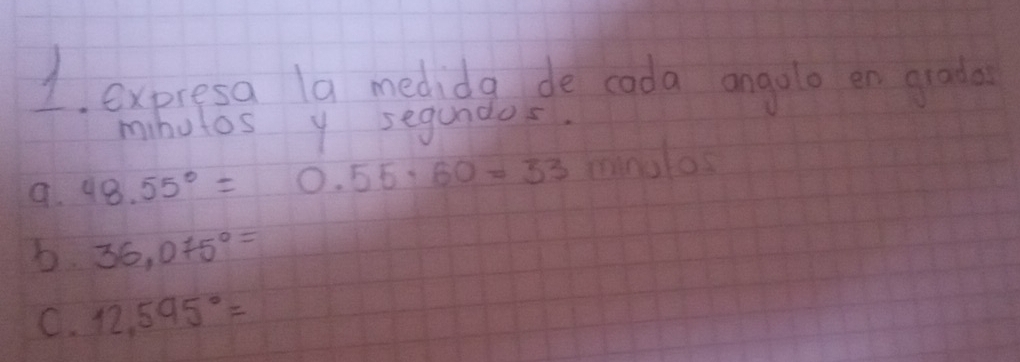 1. expresa la medida de coda angolo en grados
minutos y segundos.
a. 48.55° = 0.55 · 60 = 33 minutos
b. 36,075° =
c. 12,595° =